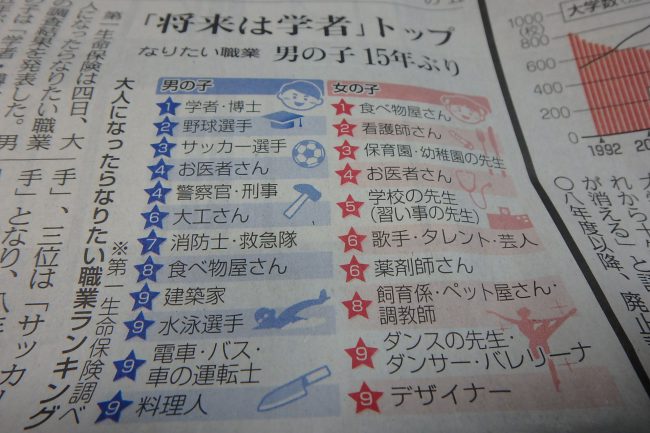 「将来は学者」トップ
なりたい職業 男の子 15年ぶり
男の子
1 学者・博士
2 野球選手
3 サッカー選手
4 お医者さん
4 警察官・刑事
6 大工さん
7 消防士・救急隊
8 食べ物屋さん
9 建築家
9 水泳選手
9 電車・バス・
車の運転士
9 料理人
女の子
1 食べ物屋さん
2 看護師さん
3 保育園・幼稚園の先生
4 お医者さん
5 学校の先生
(習い事の先生)
6 歌手・タレント・芸人
6 薬剤師さん
8 飼育係・ペット屋さん・
調教師
9 ダンスの先生・
ダンサー・バレリーナ
9 デザイナー
大人になったらなりたい職業ランキング
※第一生命保険調べ
第一生命保険は四日、大
人になったらなりたい職業
の調査結果を発表した。男
手」、三位は「サッカー
手」となり、八年
大学数
1000
(校)
800
600
400
200
0
1992
れから千
が消える」と
〇八年度以降、廃止